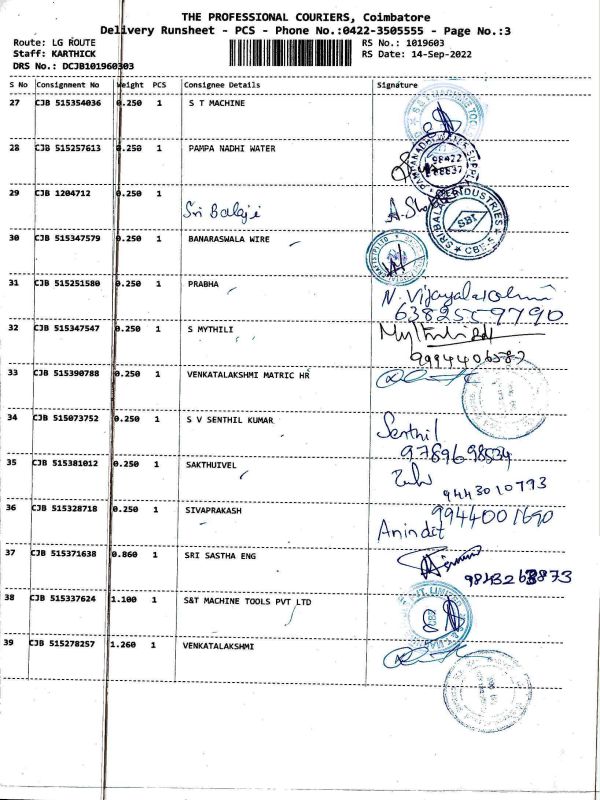 THE PROFESSIONAL COURIERS, Coimbatore
Delivery Runsheet - PCS - Phone No.:0422-3505555 - Page No.:3
Route: LG ROUTE
RS No.: 1019603
Staff: KARTHICK
RS Date: 14-Sep-2022
DRS No.: DCJB101960303
S No Consignment No Weight PCS Consignee Details Signature
27 CJB 515354036 0.250 1 S T MACHINE
28 CJB 515257613 0.250 1 PAMPA NADHI WATER
98422
29 CJB 1204712 0.250 1
Sri Balaji
SRI BALAJI INDUSTRIES
SBI
CBE-5
30 CJB 515347579 0.250 1 BANARASWALA WIRE
31 CJB 515251580 0.250 1 PRABHA
N. Vijayalakshmi
32 CJB 515347547 0.250 1 S MYTHILI
33 CJB 515390788 0.250 1 VENKATALAKSHMI MATRIC HR
34 CJB 515073752 0.250 1 S V SENTHIL KUMAR
Senthil
35 CJB 515381012 0.250 1 SAKTHUIVEL
9443010793
36 CJB 515328718 0.250 1 SIVAPRAKASH
9944001690
37 CJB 515371638 0.860 1 SRI SASTHA ENG
38 CJB 515337624 1.100 1 S&T MACHINE TOOLS PVT LTD
39 CJB 515278257 1.260 1 VENKATALAKSHMI